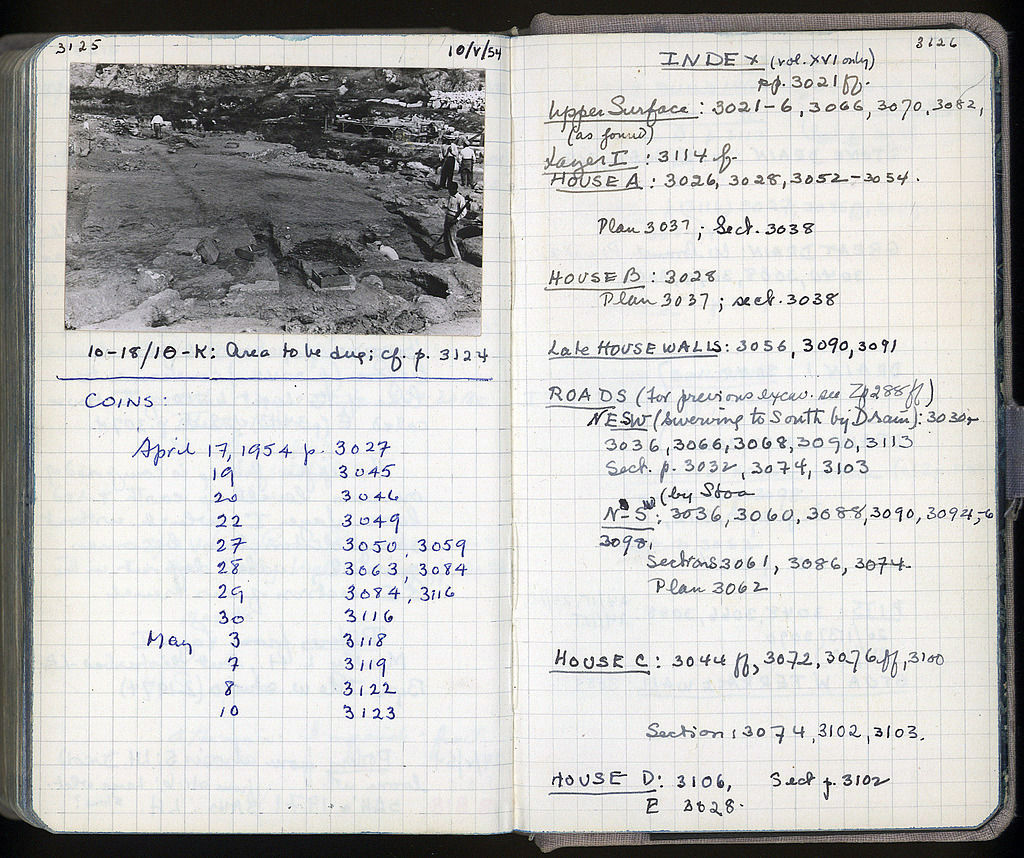 3125
10/V/54
10-18/ΙΘ-Κ: Area to be dug; cf. p. 3124
COINS:
April 17, 1954 p. 3027
19 3045
20 3046
22 3049
27 3050, 3059
28 3063, 3084
29 3084, 3116
30 3116
May 3 3118
7 3119
8 3122
10 3123
3126
INDEX (vol. XVI only)
pp. 3021 ff.
Upper Surface: 3021-6, 3066, 3070, 3082,
(as found)
Layer I: 3114 f.
HOUSE A: 3026, 3028, 3052-3054.
Plan 3037; Sect. 3038
HOUSE B: 3028
Plan 3037; sect. 3038
Late HOUSE WALLS: 3056, 3090, 3091
ROADS (for previous excav. see 288 ff)
NESW (swerving to South by Drain): 3030,
3036, 3066, 3068, 3090, 3113
Sect. p. 3032, 3074, 3103
(by Stoa
N-S: 3036, 3060, 3088, 3090, 3094,-6
3098,
Sections 3061, 3086, 3074
Plan 3062
HOUSE C: 3044 ff, 3072, 3076 ff, 3100
Section: 3074, 3102, 3103.
HOUSE D: 3106, Sect p. 3102
E 3028.